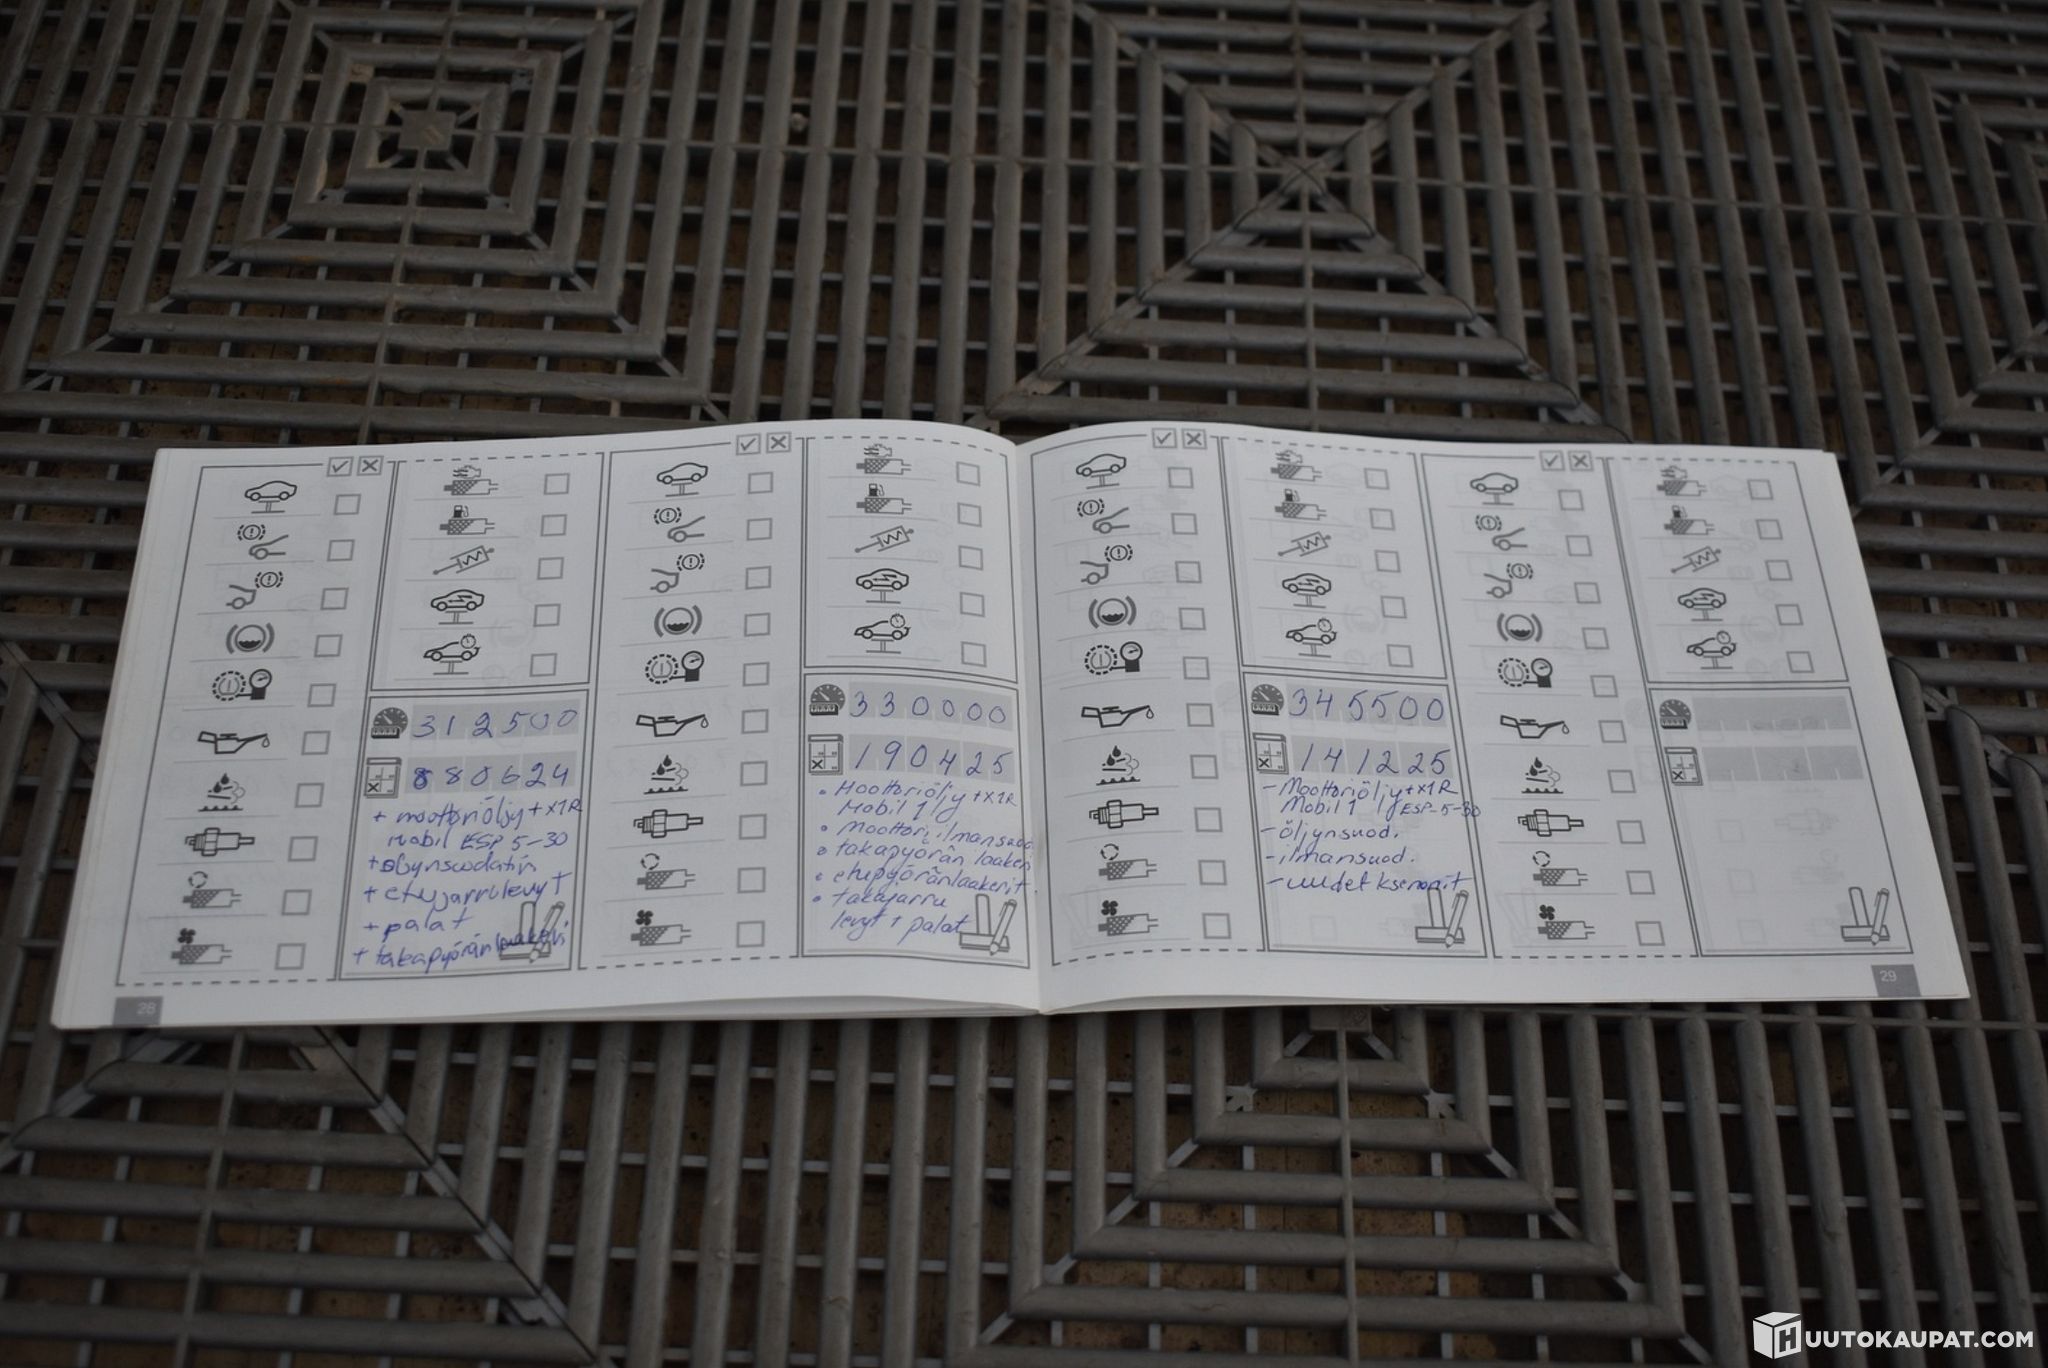 312500
880624
+ moottoriöljy + X1R
Mobil ESP 5-30
+ öljynsuodatin
+ etujarrulevyt
+ palat
+ takapyörän laakeri
28
330000
190425
• Moottoriöljy + X1R
Mobil 1
• moottori, ilmansuod.
• takapyörän laakeri
• etupyöränlaakerit.
• takajarru
levyt + palat
345500
141225
- Moottoriöljy + X1R
Mobil 1 ESP-5-30
- öljynsuod.
- ilmansuod.
- uudet ksenonit
29
HUUTOKAUPAT.COM